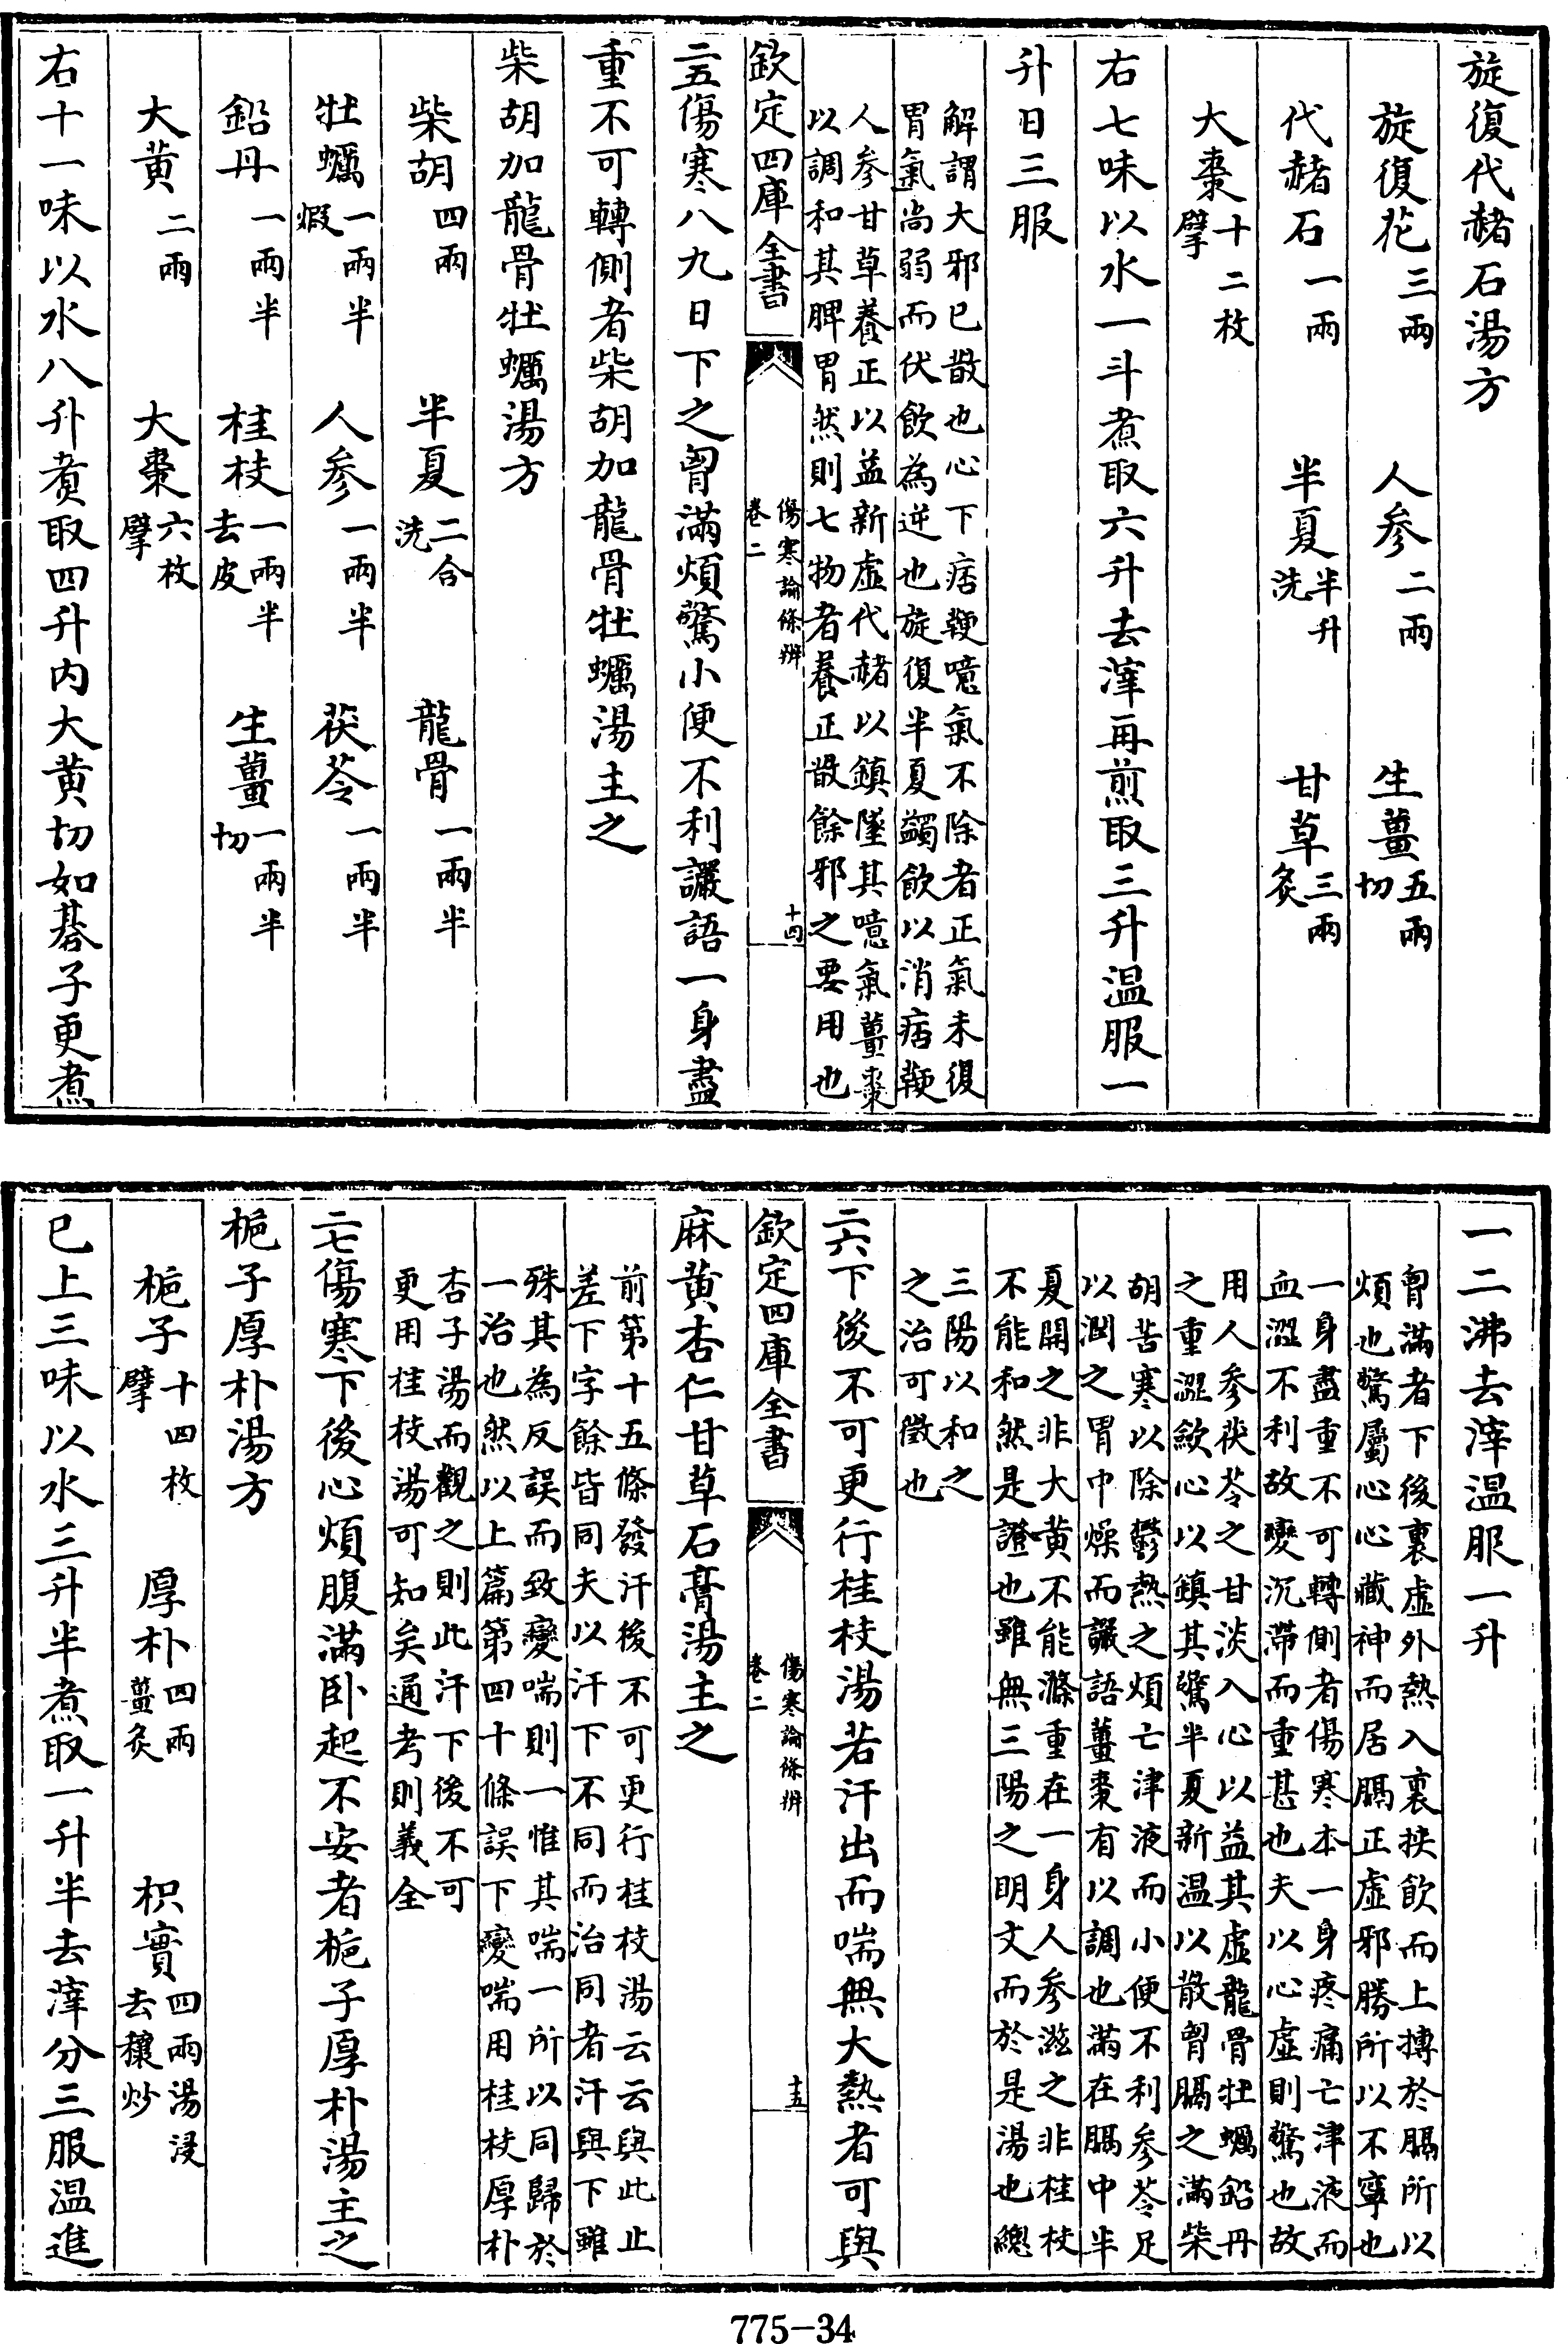 旋復代赭石湯方
旋復花三兩 人參二兩 生薑五兩切
代赭石一兩 半夏半升洗 甘草三兩炙
大棗十二枚擘
右七味以水一斗煮取六升去滓再煎取三升温服一
升日三服
解謂大邪已散也心下痞鞕噫氣不除者正氣未復
胃氣尚弱而伏飲為逆也旋復半夏蠲飲以消痞鞕
人參甘草養正以益新虛代赭以鎮墜其噫氣薑棗
以調和其脾胃然則七物者養正散餘邪之要用也
欽定四庫全書
傷寒論條辨
卷二
十四
二五傷寒八九日下之胷滿煩驚小便不利讝語一身盡
重不可轉側者柴胡加龍骨牡蠣湯主之
柴胡加龍骨牡蠣湯方
柴胡四兩 半夏二合洗 龍骨一兩半
牡蠣一兩半煆 人參一兩半 茯苓一兩半
鉛丹一兩半 桂枝一兩半去皮 生薑一兩半切
大黄二兩 大棗六枚擘
右十一味以水八升煮取四升内大黄切如碁子更煮
一二沸去滓温服一升
胷滿者下後裏虛外熱入裏挾飲而上摶於膈所以
煩也驚屬心心藏神而居膈正虛邪勝所以不寧也
一身盡重不可轉側者傷寒本一身疼痛亡津液而
血澀不利故變沉滯而重甚也夫以心虛則驚也故
用人參茯苓之甘淡入心以益其虛龍骨牡蠣鉛丹
之重澀歛心以鎮其驚半夏新温以散胷膈之滿柴
胡苦寒以除鬱熱之煩亡津液而小便不利參苓足
以潤之胃中燥而讝語薑棗有以調也滿在膈中半
夏開之非大黄不能滌重在一身人參滋之非桂枝
不能和然是證也雖無三陽之明文而於是湯也總
三陽以和之
之治可徵也
二六下後不可更行桂枝湯若汗出而喘無大熱者可與
欽定四庫全書
傷寒論條辨
卷二
十五
麻黄杏仁甘草石膏湯主之
前第十五條發汗後不可更行桂枝湯云云與此止
差下字餘皆同夫以汗下不同而治同者汗與下雖
殊其為反誤而致變喘則一惟其喘一所以同歸於
一治也然以上篇第四十條誤下變喘用桂枝厚朴
杏子湯而觀之則此汗下後不可
更用桂枝湯可知矣通考則義全
二七傷寒下後心煩腹滿卧起不安者梔子厚朴湯主之
梔子厚朴湯方
梔子十四枚擘 厚朴四兩薑炙 枳實四兩湯浸去穰炒
已上三味以水三升半煮取一升半去滓分三服温進
775-34